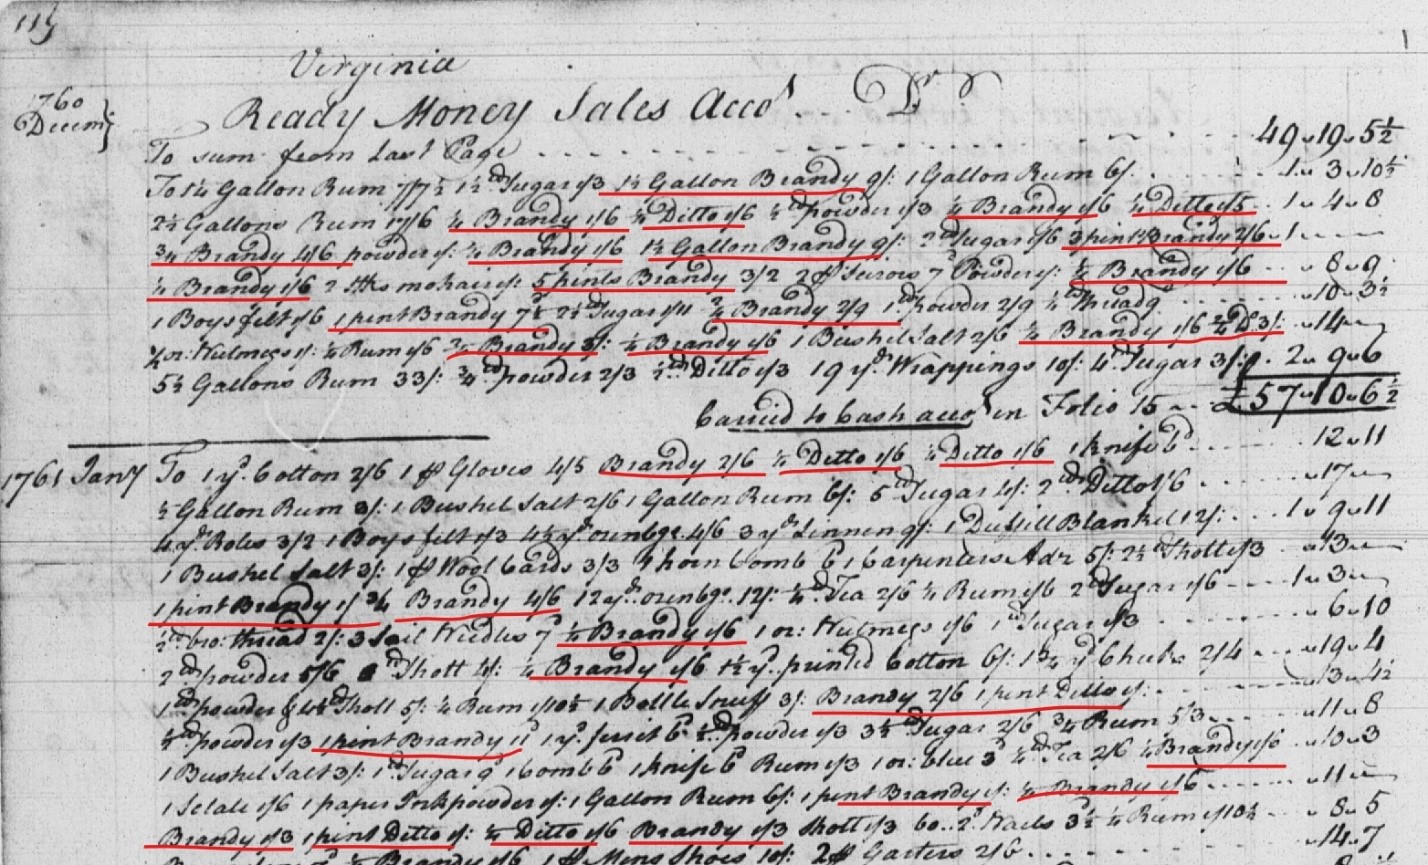 115
Virginia
1760
Decem
Ready Money Sales Acco.t Dr
To sum from Last Page 49 19 5½
To 1¼ Gallon Rum 7/7½ 1½ Sugar 1/3 1½ Gallon Brandy 9/: 1 Gallon Rum 6/. 1 3 10½
2½ Gallons Rum 17/6 ¼ Brandy 1/6 ¼ Ditto 1/6 ½ powder 1/3 ¼ Brandy 1/6 ¼ Ditto 1/5 1 4 8
¾ Brandy 4/6 powder 1/: ¼ Brandy 1/6 1½ Gallon Brandy 9/: 2 Sugar 1/6 3 pint Brandy 2/6 1
¼ Brandy 1/6 2 mohair 1/: 5 pints Brandy 3/2 2 Powder 1/: ¼ Brandy 1/6 8 9
1 Boys felt 1/6 1 pint Brandy 7½ 2½ Sugar 1/11 Brandy 2/9 1 powder 2/9 ¼ thread 9 10 3½
Nutmegs 1/: ¼ Rum 1/6 Brandy 3/: ¼ Brandy 1/6 1 Bushel Salt 2/6 ¼ Brandy 1/6 D.o 3/: 14
5½ Gallons Rum 33/: ¾ powder 2/3 Ditto 1/3 19 yds Wrappings 10/: 4 Sugar 3/: 2 9 6
£57 10 6½
Carried to Cash acco.t in Folio 15
1761 Jany To 1 yd. Cotton 2/6 1 Gloves 4/5 Brandy 2/6 ¼ Ditto 1/6 ¼ Ditto 1/6 1 knife 6d 12 11
½ Gallon Rum 3/: 1 Bushel Salt 2/6 1 Gallon Rum 6/: 5 Sugar 4/: 2 Ditto 1/6 17
4 yds Roles 3/2 1 Boys felt 1/3 4½ yds oznbgs. 4/6 3 yds Linnen 9/: 1 Duffill Blanket 12/: 1 9 11
1 Bushel Salt 3/: 1 Wool Cards 3/3 horn Comb 6d 1 Carpenters Adz 5/: 2½ Shott 1/3 13
1 pint Brandy 1/ ¾ Brandy 4/6 12 yds oznbgs. 12/: ¼ Tea 2/6 ¼ Rum 1/6 2 Sugar 1/6 1 3
bro. thread 2/: 3 Sail Needles 7 ¼ Brandy 1/6 1 oz: Nutmegs 1/6 1 Sugar 1/3 6 10
2 powder 5/6 Shott 4/: ¼ Brandy 1/6 1½ yds. printed Cotton 6/: 1¾ yd Checks 2/4 19 4
1 powder 4½ Shott 5/: ¼ Rum 1/10½ 1 Bottle Snuff 3/: Brandy 2/6 1 pint Ditto 1/: 13 4½
½ powder 1/3 1 pint Brandy 1 yd. ferrit 6d ½ powder 1/3 3½ Sugar 2/6 ¾ Rum 5/3 11 8
1 Bushel Salt 3/: 1 Sugar 9d 1 Comb 6d 1 knife 6d Rum 1/3 1 oz: blue 3d ¼ Tea 2/6 ¼ Brandy 1/6 10 3
1 1/6 1 paper Inkpowder 1/: 1 Gallon Rum 6/: 1 pint Brandy 1/: ¼ Brandy 1/6 11
Brandy 1/3 1 pint Ditto 1/: ¼ Ditto 1/6 Brandy 1/3 Shott 1/3 60.. 2d Nails 3½ ¼ Rum 1/10½ 8 5
Brandy 1/6 1 Mens Shoes 10/: 2 Garters 2/6 14 7